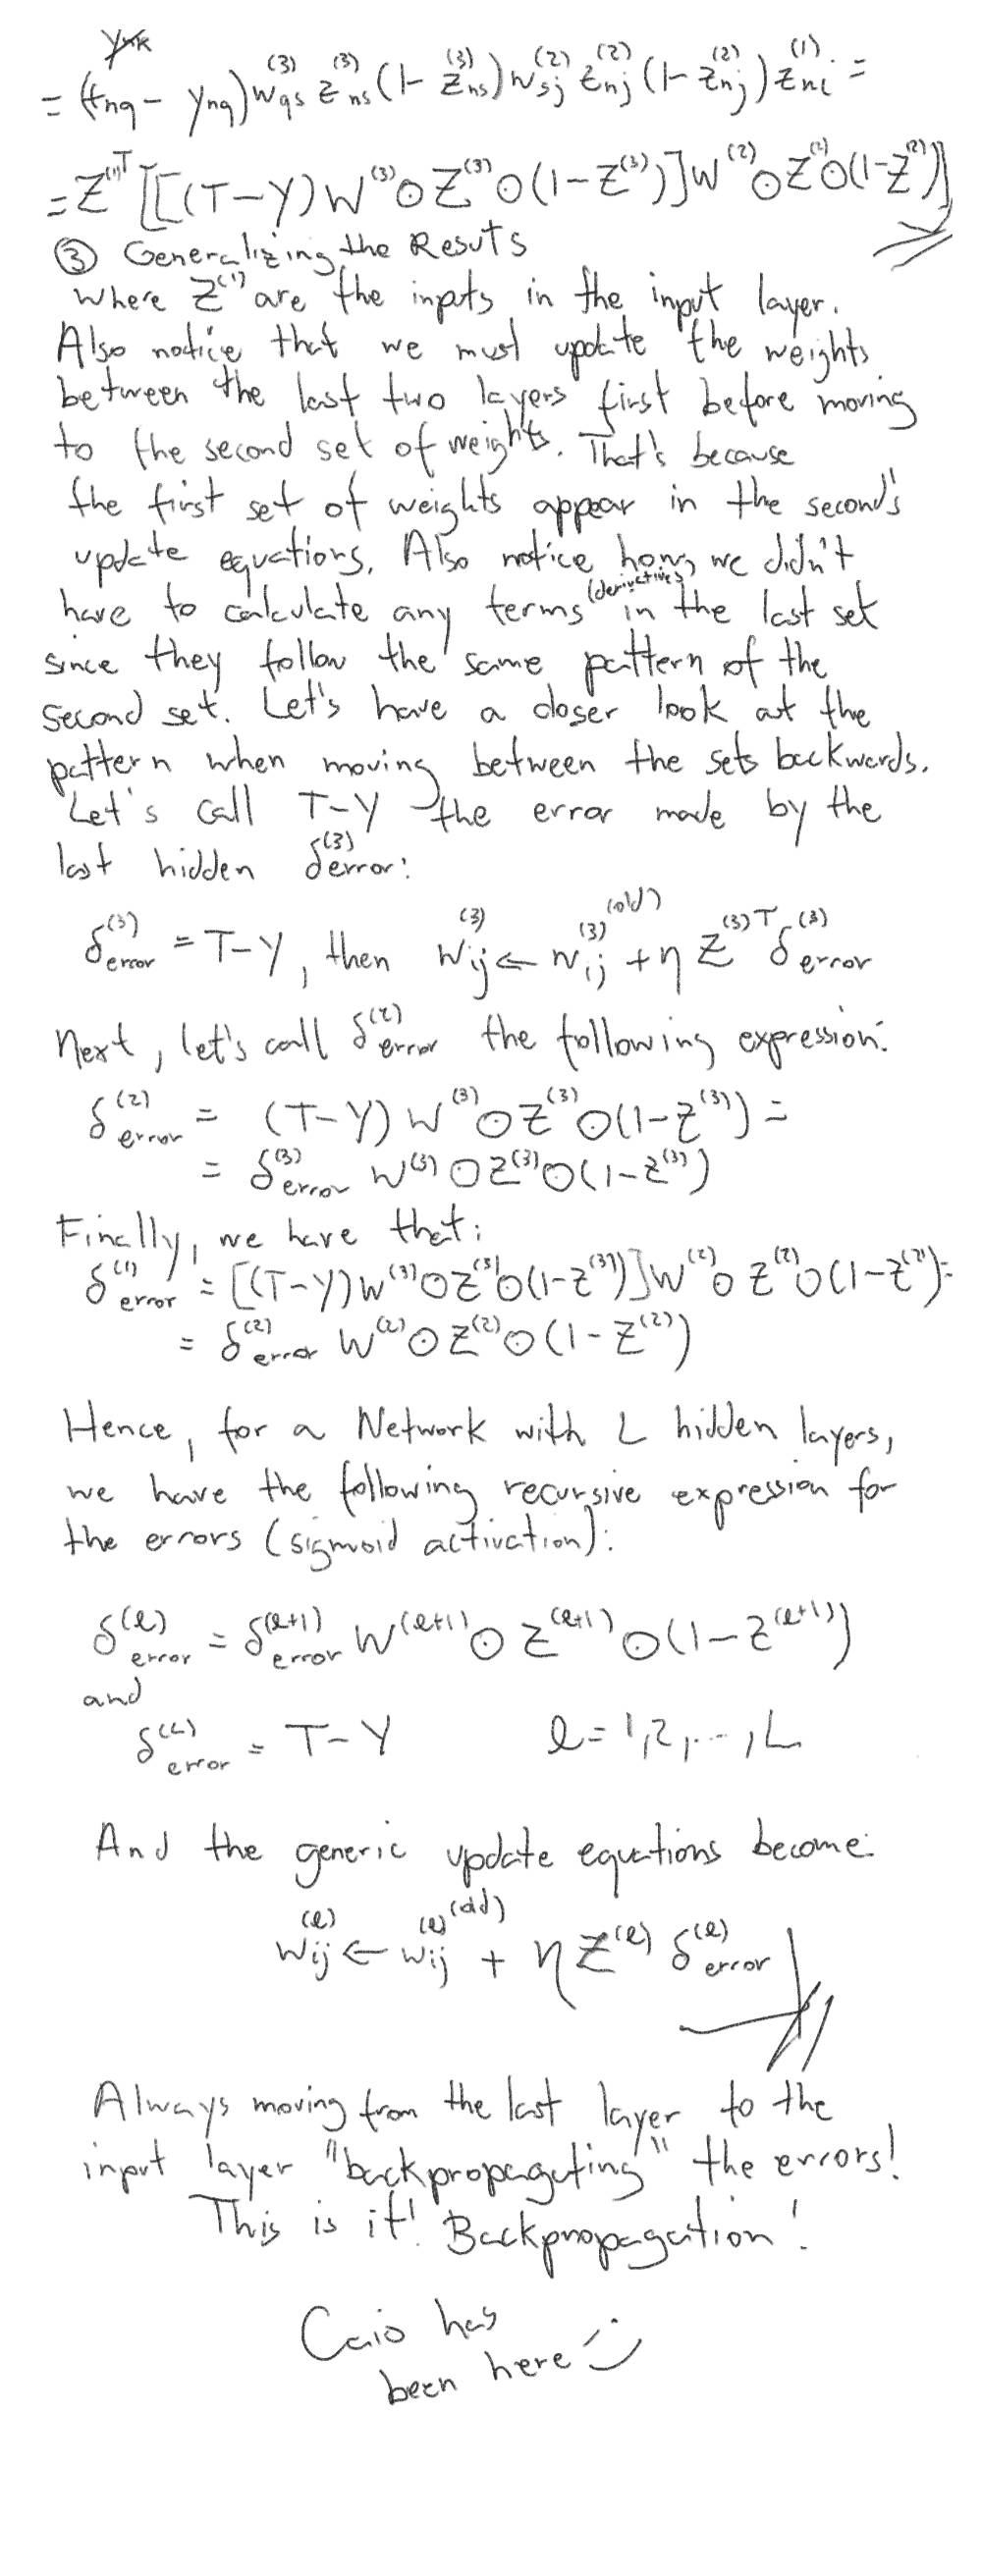 = (t_nq − y_nq) w_qs^(3) z_ns^(3) (1 − z_ns^(3)) w_sj^(2) z_nj^(2) (1 − z_nj^(2)) z_ni^(1) =
= Z^(1)T [[(T−Y) W^(3) ⊙ Z^(3) ⊙ (1−Z^(3))] W^(2) ⊙ Z^(2) ⊙ (1−Z^(2))]
③ Generalizing the Resuts
where Z^(1) are the inputs in the input layer.
Also notice that we must update the weights
between the last two layers first before moving
to the second set of weights. That's because
the first set of weights appear in the second's
update equations. Also notice how we didn't
have to calculate any terms (derivatives) in the last set
since they follow the same pattern of the
second set. Let's have a closer look at the
pattern when moving between the sets backwards.
Let's call T−Y the error made by the
last hidden δ^(3)error:
δ^(3)error = T−Y, then w_ij^(3) ← w_ij^(3)(old) + η Z^(3)T δ^(3)error
Next, let's call δ^(2)error the following expression:
δ^(2)error = (T−Y) W^(3) ⊙ Z^(3) ⊙ (1−Z^(3)) =
= δ^(3)error W^(3) ⊙ Z^(3) ⊙ (1−Z^(3))
Finally, we have that:
δ^(1)error = [(T−Y) W^(3) ⊙ Z^(3) ⊙ (1−Z^(3))] W^(2) ⊙ Z^(2) ⊙ (1−Z^(2)) =
= δ^(2)error W^(2) ⊙ Z^(2) ⊙ (1−Z^(2))
Hence, for a Network with L hidden layers,
we have the following recursive expression for
the errors (sigmoid activation):
δ^(l)error = δ^(l+1)error W^(l+1) ⊙ Z^(l+1) ⊙ (1−Z^(l+1))
and
δ^(L)error = T−Y l=1,2,...,L
And the generic update equations become:
w_ij^(l) ← w_ij^(l)(old) + η Z^(l) δ^(l)error
Always moving from the last layer to the
input layer "backpropagating" the errors!
This is it! Backpropagation!
Caio has
been here